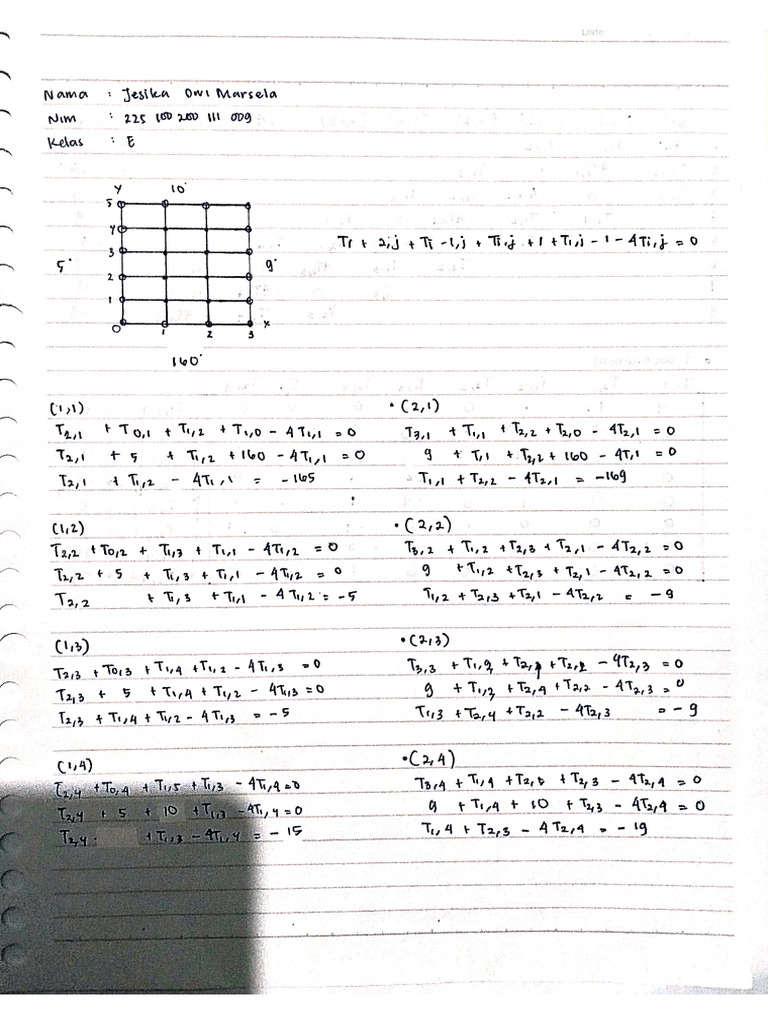 Nama : Jesika Dwi Marsela
Nim : 225 100 200 111 009
Kelas : E
Y 10°
5
4
3
2
1
0 1 2 3 X
5°
9°
160°
Ti + 2,j + Ti - 1,j + Ti,j + 1 + Ti,j - 1 - 4Ti,j = 0
(1,1)
T2,1 + T0,1 + T1,2 + T1,0 - 4T1,1 = 0
T2,1 + 5 + T1,2 + 160 - 4T1,1 = 0
T2,1 + T1,2 - 4T1,1 = -165
• (2,1)
T3,1 + T1,1 + T2,2 + T2,0 - 4T2,1 = 0
9 + T1,1 + T2,2 + 160 - 4T,1 = 0
T1,1 + T2,2 - 4T2,1 = -169
(1,2)
T2,2 + T0,2 + T1,3 + T1,1 - 4T1,2 = 0
T2,2 + 5 + T1,3 + T1,1 - 4T1,2 = 0
T2,2 + T1,3 + T1,1 - 4T1,2 = -5
• (2,2)
T3,2 + T1,2 + T2,3 + T2,1 - 4T2,2 = 0
9 + T1,2 + T2,3 + T2,1 - 4T2,2 = 0
T1,2 + T2,3 + T2,1 - 4T2,2 = -9
(1,3)
T2,3 + T0,3 + T1,4 + T1,2 - 4T1,3 = 0
T2,3 + 5 + T1,4 + T1,2 - 4T1,3 = 0
T2,3 + T1,4 + T1,2 - 4T1,3 = -5
• (2,3)
T3,3 + T1,3 + T2,4 + T2,2 - 4T2,3 = 0
9 + T1,3 + T2,4 + T2,2 - 4T2,3 = 0
T1,3 + T2,4 + T2,2 - 4T2,3 = -9
(1,4)
T2,4 + T0,4 + T1,5 + T1,3 - 4T1,4 = 0
T2,4 + 5 + 10 + T1,3 - 4T1,4 = 0
T2,4 + T1,3 - 4T1,4 = -15
• (2,4)
T3,4 + T1,4 + T2,5 + T2,3 - 4T2,4 = 0
9 + T1,4 + 10 + T2,3 - 4T2,4 = 0
T1,4 + T2,3 - 4T2,4 = -19